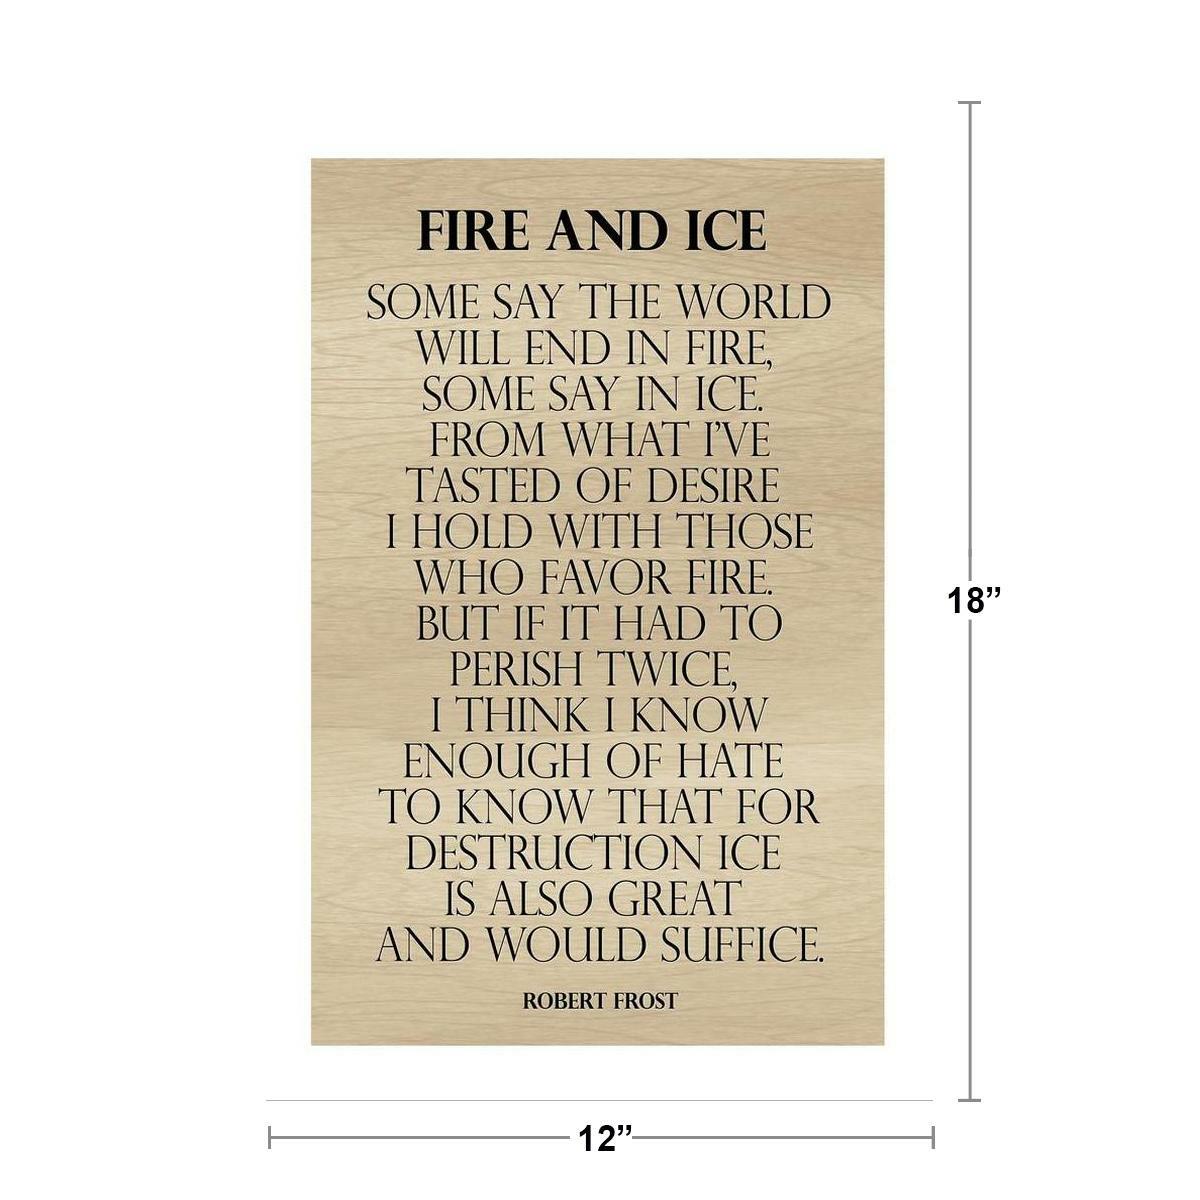 FIRE AND ICE
SOME SAY THE WORLD
WILL END IN FIRE,
SOME SAY IN ICE.
FROM WHAT I’VE
TASTED OF DESIRE
I HOLD WITH THOSE
WHO FAVOR FIRE.
BUT IF IT HAD TO
PERISH TWICE,
I THINK I KNOW
ENOUGH OF HATE
TO KNOW THAT FOR
DESTRUCTION ICE
IS ALSO GREAT
AND WOULD SUFFICE.
ROBERT FROST
18”
12”